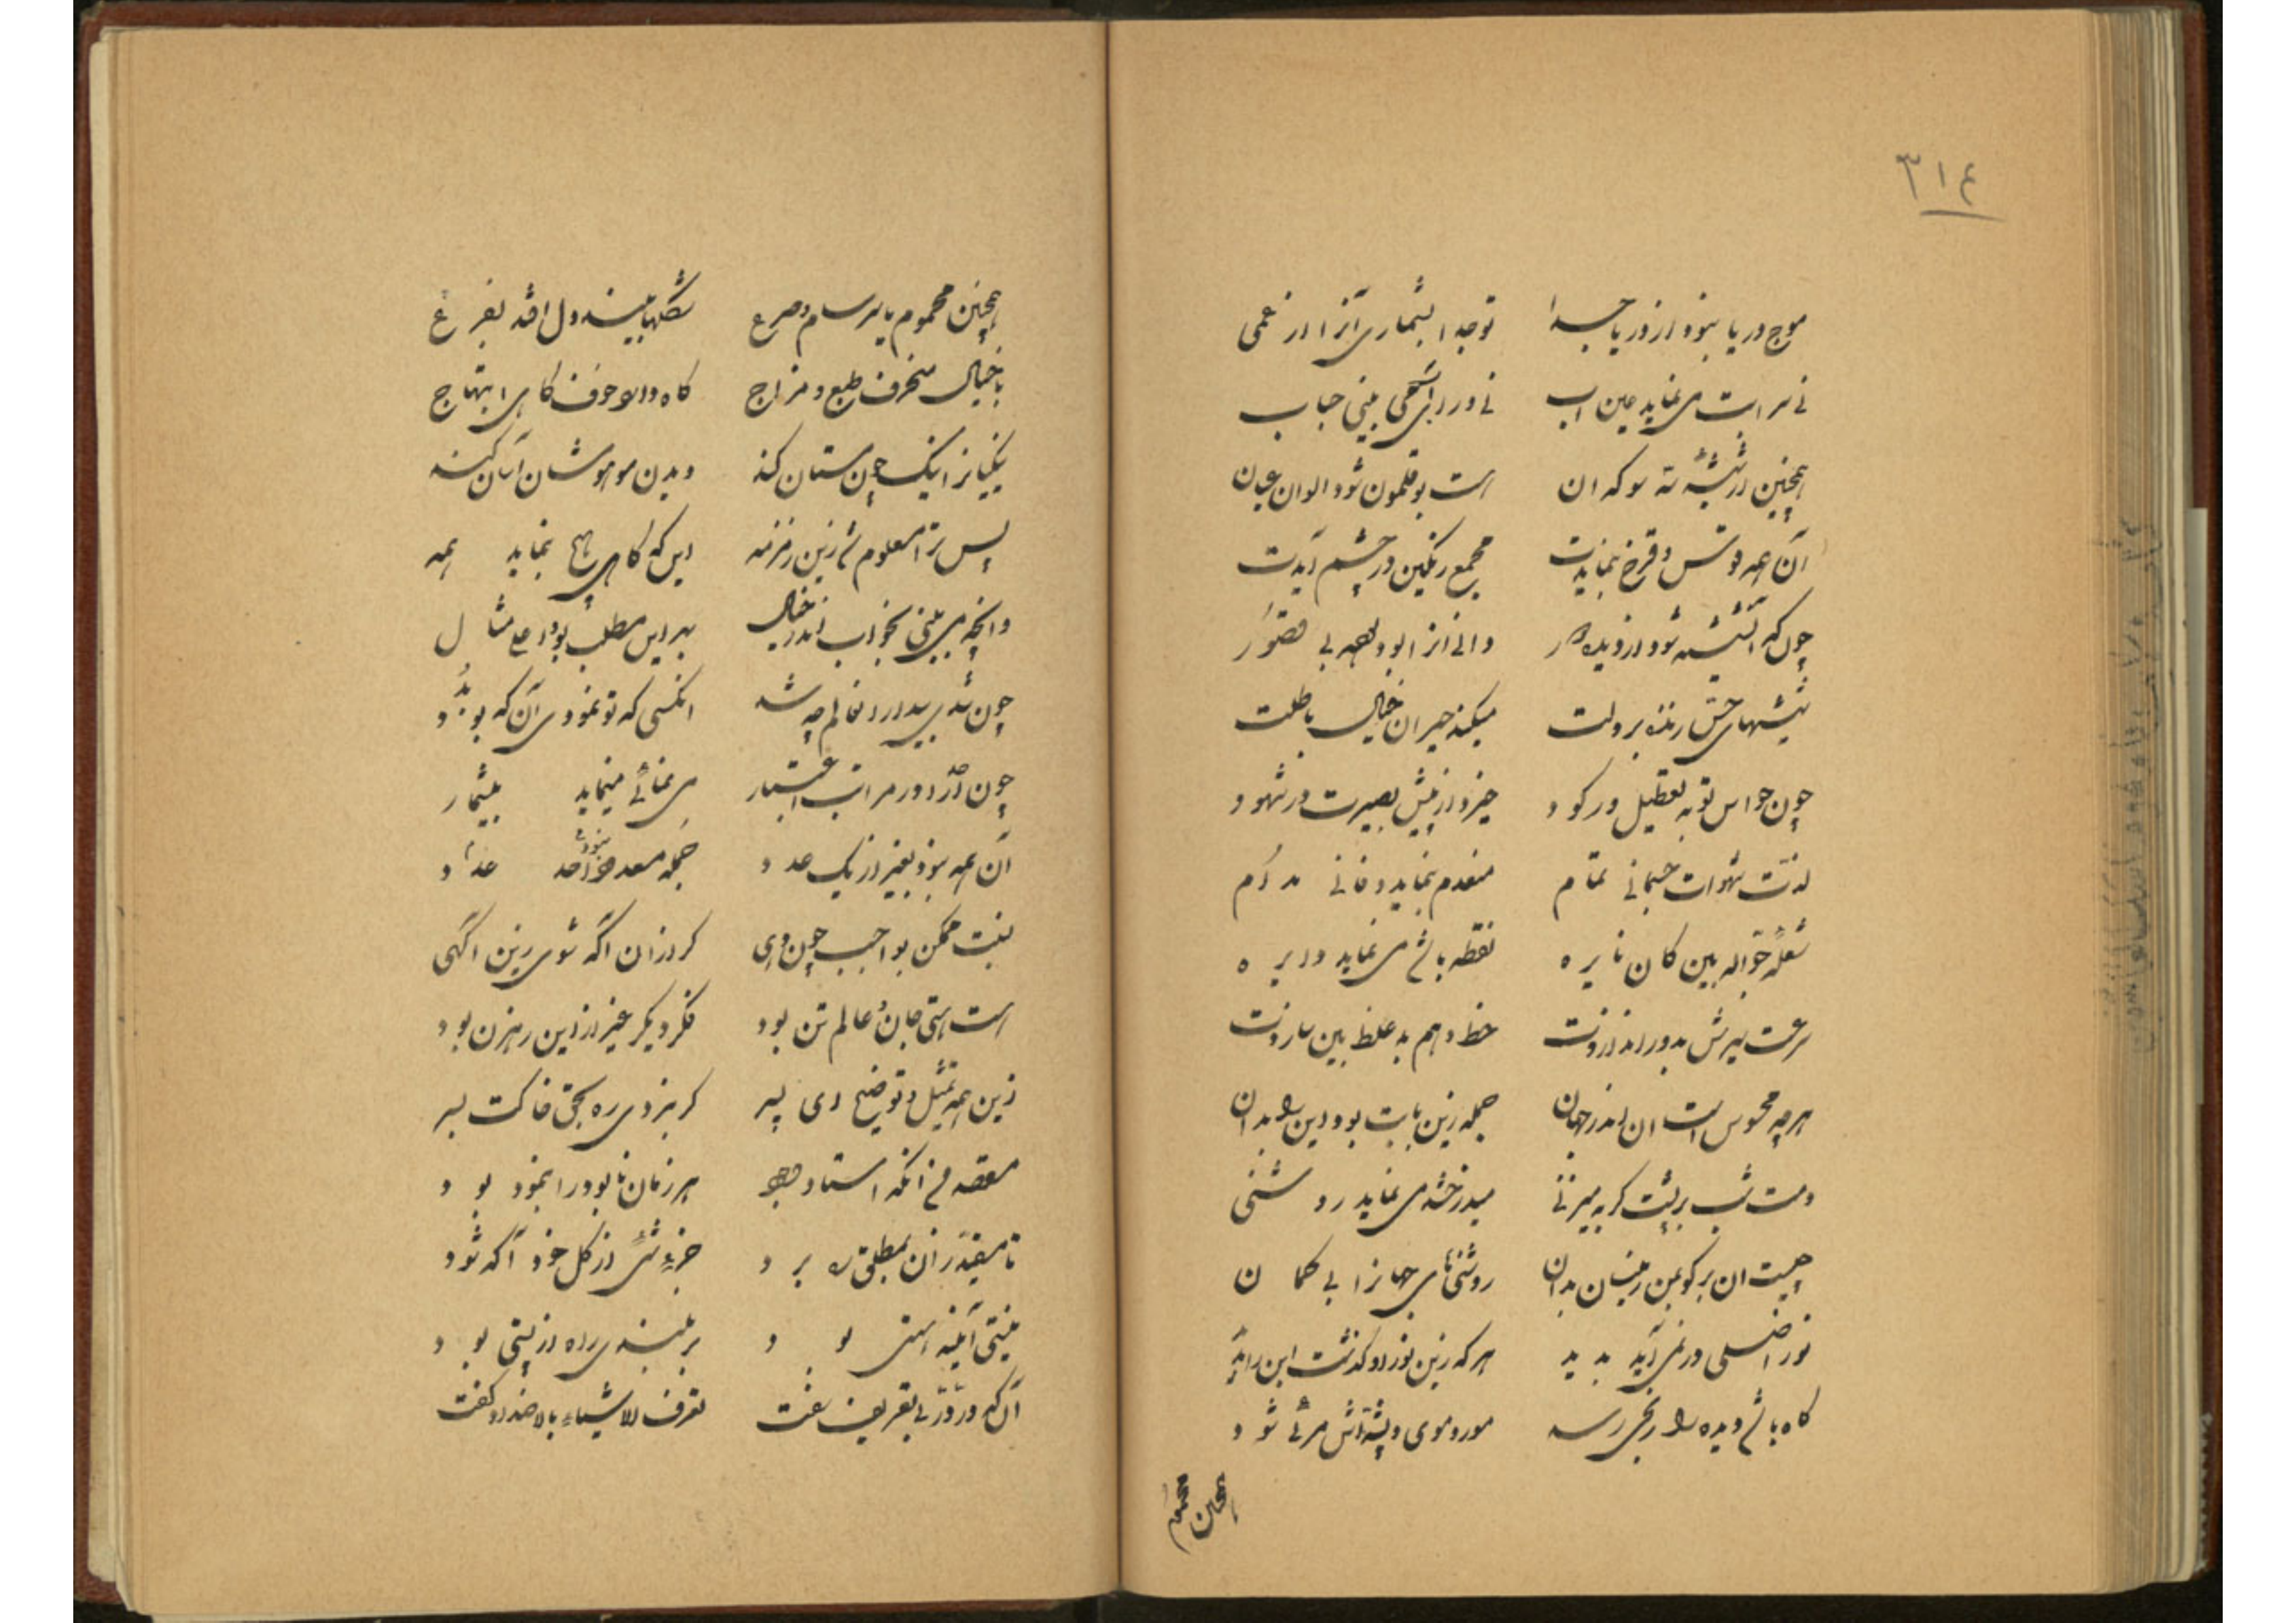 ٣١٤
موج دریا نبود از دریا جدا توجدا بشماری آنرا از عمی
نی سرابت می نماید عین اب نی در
همچنین از شیشهٔ سه سو که ان است بوقلمون شود الوان عیان
آن همه قوس و قزح بنمایدت مجمع رنگین در چشم آیدت
چون که آن شیشه شود از دیده دور دانی انرا بود
شیشهای حس زننده بر دلت میکند حیران خیال باطلت
چون حواس تو به تعطیل و رکود خیزد از پیش بصیرت در شهود
لذت شهوات جسمانی تمام منعدم بنماید و فانی مدام
شعلهٔ جواله بین کان نایره نقطه باشد می نماید دایره
سرعت سیرش بدور اندازدت خط وهم به غلط بین سازدت
هرچه محسوس است ان اندر جهان جمله زین بابت بود این را بدان
دست شب بر پشت گربه میزنی میدرخشد می نماید روشنی
چیست ان برگو بمن زینسان بدان روشنیهای جهانرا بی گمان
نور اصلی در نمی آید بدید هر که زین نور او گذشت این را بدید
گاه باشد دیده را رنجی رسد مور و موی و پشه‌اش مرئی شود
همچنین محموم
همچنین محموم یا برسام و صرع شکلها بیند دل افتد بفزع
با خیال منحرف طبع و مزاج گاه دارد خوف گاهی ابتهاج
نیکیانرا نیک چون مستان کند دیدن موهوشان آسان کند
پس ترا معلوم شد زین زمزمه این که گاهی هیچ بنماید همه
وانچه می بینی بخواب اندر خیال بهر این مطلب بود اعلی مثال
چون شدی بیدار ان عالم چه شد انکسی که تو نمودی آن که بود
چون در مرات اعتبار می نمائی مینماید بیشمار
آن همه نبود بغیر از یک عدد جمله معدود عدد
نسبت ممکن بواجب چون دهی گر ازان اگه شوی زین اگهی
است هستی جان و عالم تن بود فکر دیگر غیر ازین رهزن بود
زین همه تمثیل و توضیح ای پسر گر نبردی ره بحق خاکت بسر
مقصدم زانکه استاد وجود هر زمان نابود را بنمود بود
تا مقید زان بمطلق ره برد جزء شیئی از کل خود آگه شود
نیستی آینه هستی بود بر بلندی راه از پستی بود
آن که در بی تعریف سفت تعرف الاشیاء بالاضداد گفت